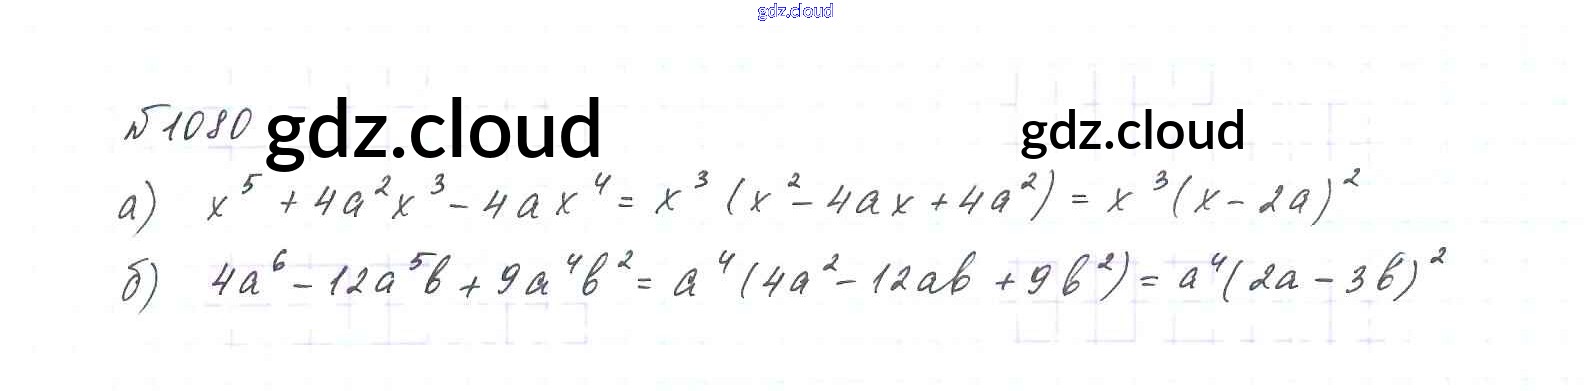 gdz.cloud
№1080 gdz.cloud gdz.cloud
а) x⁵ + 4a²x³ - 4ax⁴ = x³ (x² - 4ax + 4a²) = x³(x - 2a)²
б) 4a⁶ - 12a⁵b + 9a⁴b² = a⁴ (4a² - 12ab + 9b²) = a⁴(2a - 3b)²